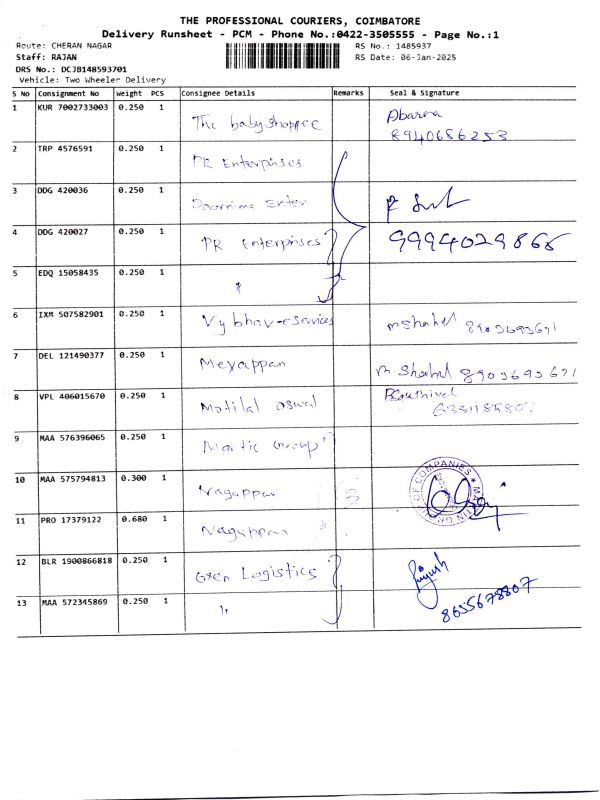 THE PROFESSIONAL COURIERS, COIMBATORE
Delivery Runsheet - PCM - Phone No.:0422-3505555 - Page No.:1
Route: CHERAN NAGAR RS No.: 1485937
Staff: RAJAN RS Date: 06-Jan-2025
DRS No.: DCJB148593701
Vehicle: Two Wheeler Delivery
S No Consignment No Weight PCS Consignee Details Remarks Seal & Signature
1 KUR 7002733003 0.250 1 The babyshoppee Abarna
8940686253
2 TRP 4576591 0.250 1 PR Enterprises
3 DDG 420036 0.250 1 Enter
4 DDG 420027 0.250 1 PR Enterprises 9994029866
5 EDQ 15058435 0.250 1 "
6 IXM 507582901 0.250 1 Vybhav-eservices
7 DEL 121490377 0.250 1 Meyappan 8903693671
8 VPL 406015670 0.250 1 Motilal oswal
9 MAA 576396065 0.250 1 Group
10 MAA 575794813 0.300 1 Nagappan
11 PRO 17379122 0.680 1 Nagappan
12 BLR 1900866818 0.250 1 Gxen Logistics Piyush
13 MAA 572345869 0.250 1 " 8655678807